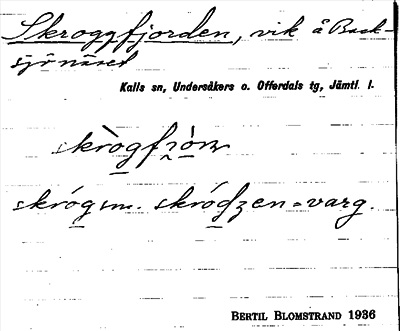 Skroggfjorden, vik å Back-
sjönäset
Kalls sn, Undersåkers o. Offerdals tg, Jämtl. l.
skrògfjòrn
skróg sm. skródzen = varg.
BERTIL BLOMSTRAND 1936